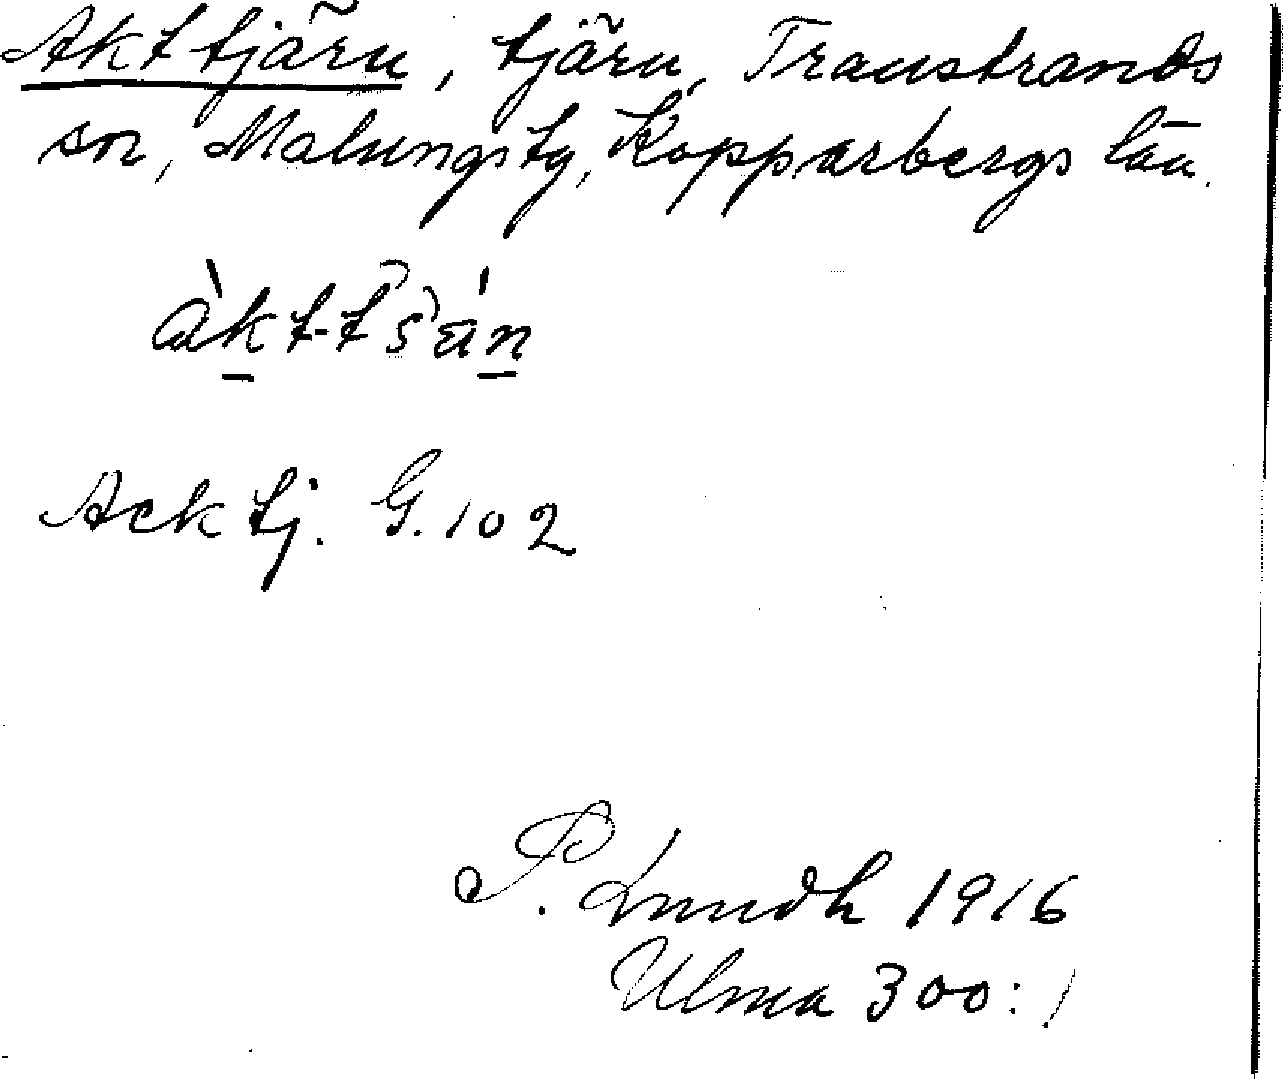 Akttjärn, tjärn, Transtrands
sn, Malungs tg, Kopparbergs län.
àkt-tsän
Acktj. G. 102
P. Lundh 1916
Ulma 300:1